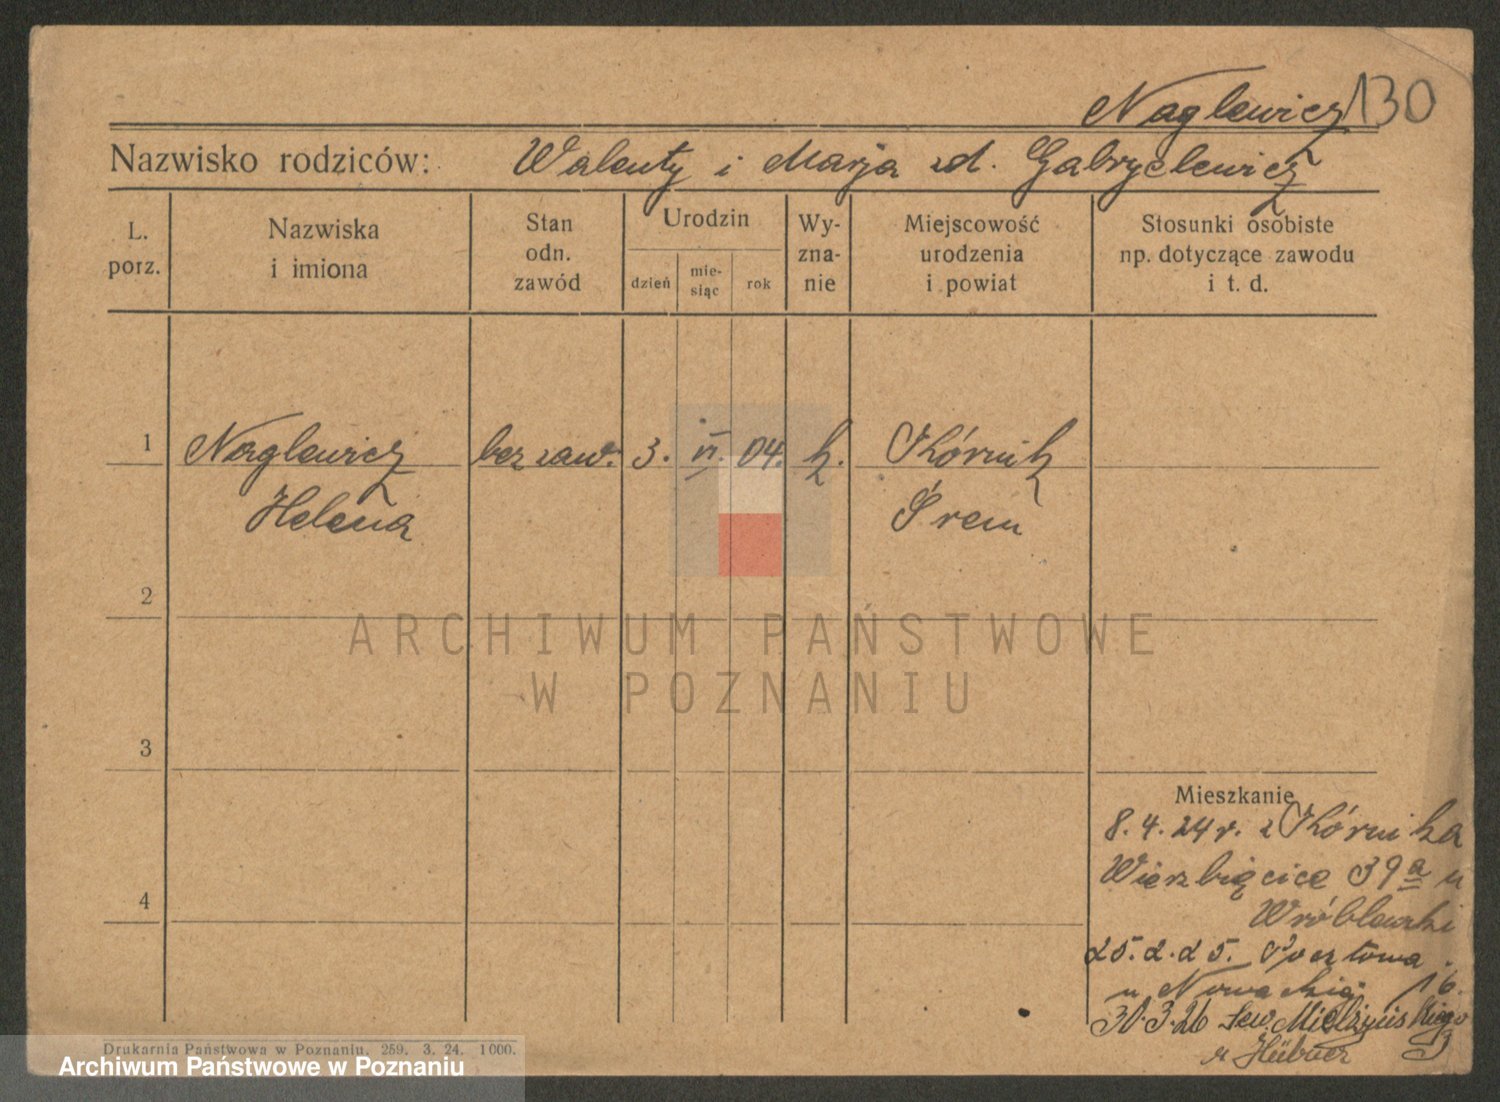 Naglewicz 130
Nazwisko rodziców: Walenty i Marja zd. Gabryelewicz
L. porz.
Nazwiska i imiona
Stan odn. zawód
Urodzin
dzień
mie-
siąc
rok
Wy-
zna-
nie
Miejscowość
urodzenia
i powiat
Stosunki osobiste
np. dotyczące zawodu
i t. d.
1 Naglewicz bez zaw. 3. VI. 04. k. Kórnik
Helena Śrem
2
ARCHIWUM PAŃSTWOWE
W POZNANIU
3
Mieszkanie
8.4.24 r. z Kórnika
4 Wierzbięcice 39 a u
Wróblewski
25.2.25. Pocztowa
u Nowackiej 16.
30.3.26 Sew. Mielżyńskiego
u Hübner
Drukarnia Państwowa w Poznaniu. 259. 3. 24. 1000.
Archiwum Państwowe w Poznaniu